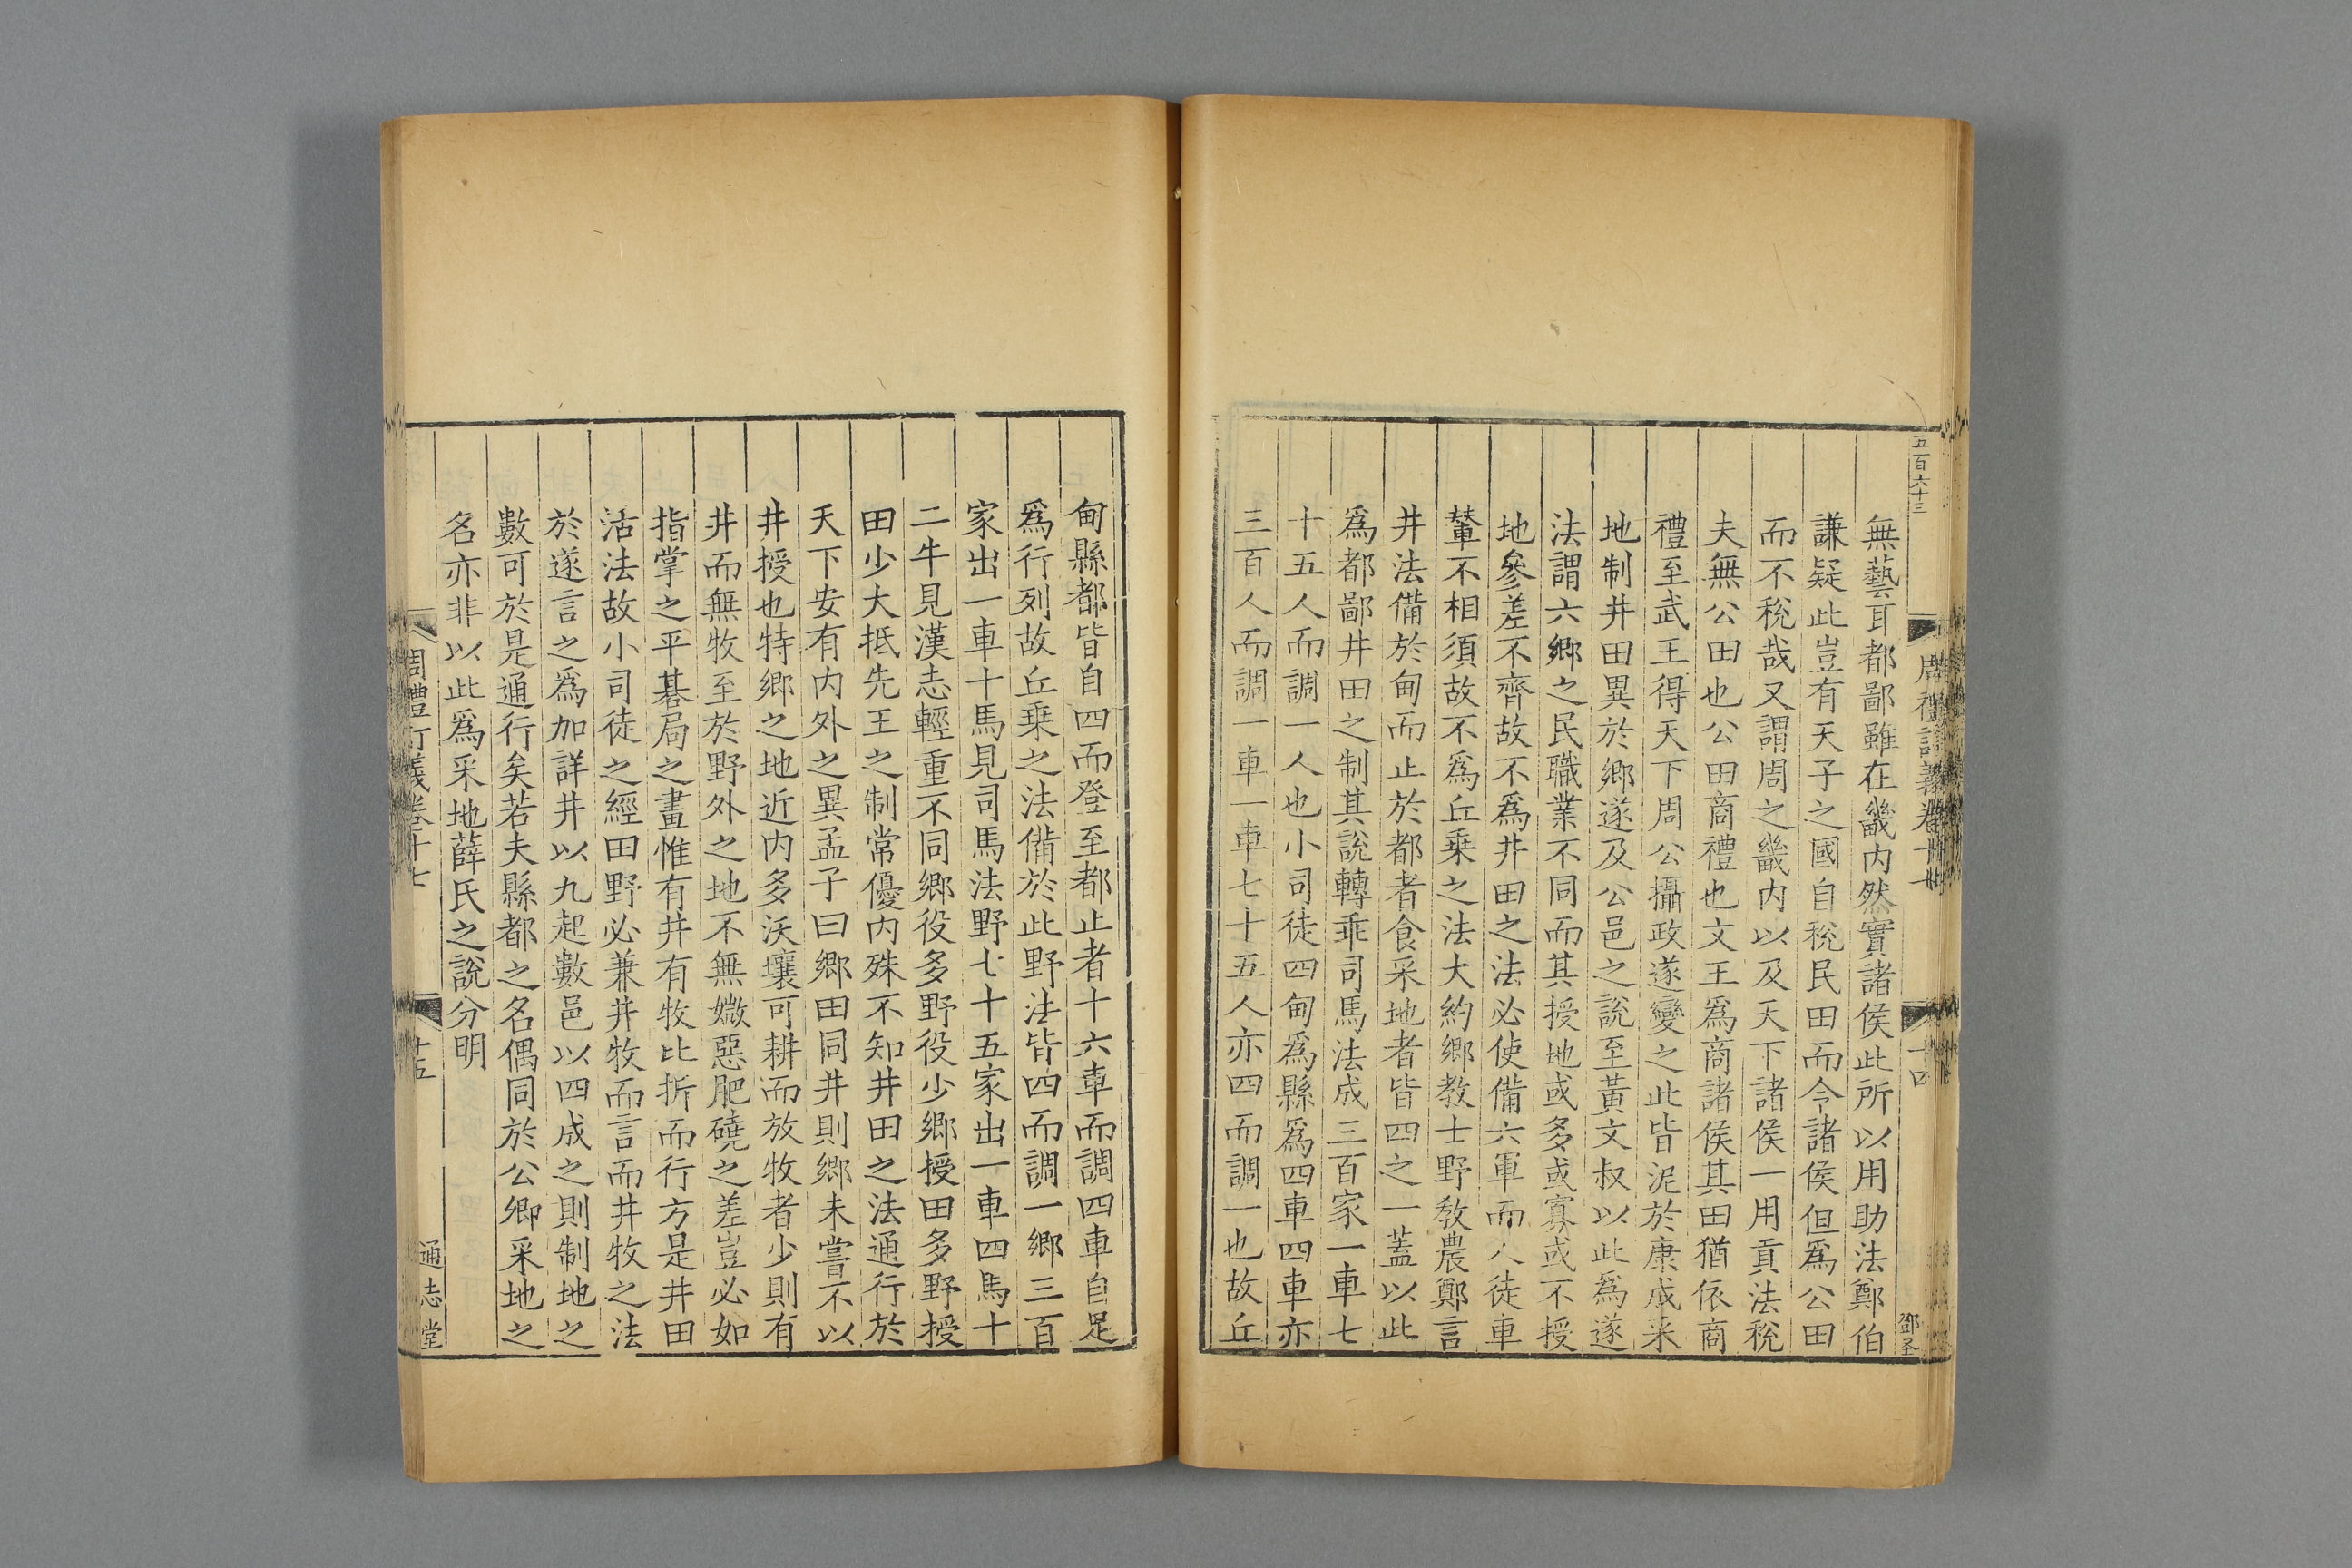 五百六十三
周禮訂義卷十七
十四
鄧圣
無藝耳都鄙雖在畿内然實諸侯此所以用助法鄭伯
謙疑此豈有天子之國自稅民田而令諸侯但爲公田
而不稅哉又謂周之畿内以及天下諸侯一用貢法稅
夫無公田也公田商禮也文王爲商諸侯其田猶依商
禮至武王得天下周公攝政遂變之此皆泥於康成采
地制井田異於鄉遂及公邑之說至黃文叔以此爲遂
法謂六鄉之民職業不同而其授地或多或寡或不授
地參差不齊故不爲井田之法必使備六軍而人徒車
輦不相須故不爲丘乗之法大約鄉教士野敎農鄭言
井法備於甸而止於都者食采地者皆四之一葢以此
爲都鄙井田之制其說轉乖司馬法成三百家一車七
十五人而調一人也小司徒四甸爲縣爲四車四車亦
三百人而調一車一車七十五人亦四而調一也故丘
甸縣都皆自四而登至都止者十六車而調四車自足
爲行列故丘乗之法備於此野法皆四而調一鄉三百
家出一車十馬見司馬法野七十五家出一車四馬十
二牛見漢志輕重不同鄉役多野役少鄉授田多野授
田少大抵先王之制常優内殊不知井田之法通行於
天下安有内外之異孟子曰鄉田同井則鄉未嘗不以
井授也特鄉之地近内多沃壤可耕而放牧者少則有
井而無牧至於野外之地不無媺惡肥磽之差豈必如
指掌之平碁局之畫惟有井有牧比折而行方是井田
活法故小司徒之經田野必兼井牧而言而井牧之法
於遂言之爲加詳井以九起數邑以四成之則制地之
數可於是通行矣若夫縣都之名偶同於公卿采地之
名亦非以此爲采地薛氏之說分明
周禮訂義卷十七
十五
通志堂